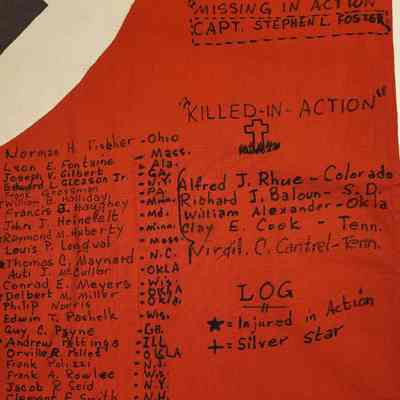 "MISSING IN ACTION
CAPT. STEPHEN L. FOSTER
"KILLED-IN-ACTION"
Alfred J. Rhue - Colorado
Richard J. Baloun - S.D.
William Alexander - Okla
Clay E. Cook - Tenn.
Virgil. C. Cantrel - Tenn.
LOG
★ = Injured in Action
+ = Silver Star
Norman H. - Ohio
Leon E. Fontaine - Mass.
Joseph V. Gilbert - Ala.
Edward L. Gleason Jr. - GA.
Frank Grossman - N.Y.
William B. Holliday - PA.
Francis B. Haughey
John J. - Md.
Raymond M. Huberty - Minni
Louis P. - Mass.
★ Thomas C. Maynard - N.C.
Auti J. - OKLA
Conrad E. Meyers - Wis
Delbert M. Miller - OKLA
Philip Norris
Edwin T. Pashelk - Wis.
Guy C. Payne - GA.
★ Andrew Pettingo - ILL
Orville R. - OKLA
Frank - N.J.
Frank A. Rowlee - Wis.
Jacob R. Seid - N.Y.
Clement F. Smith - N.H.